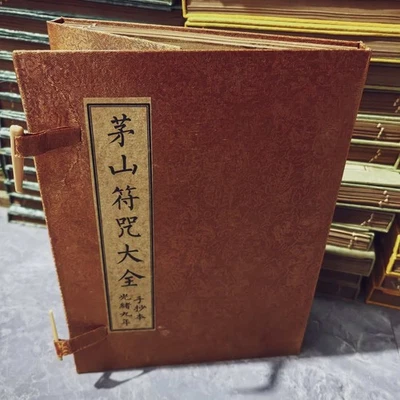 茅山符咒大全
手抄本
光緒九年